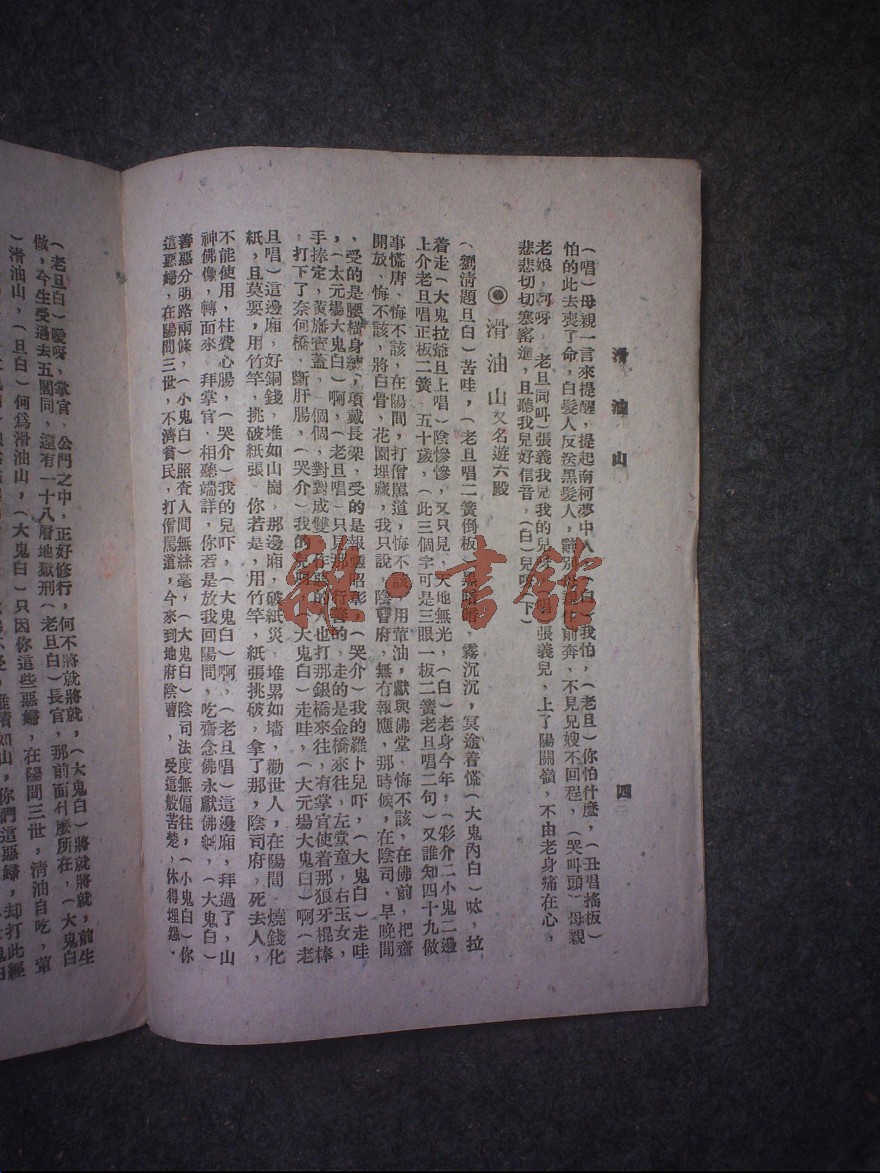 滑油山
四
(唱)母親一言來提醒，提起南柯夢中人，(白)我怕，(老旦)你怕什麼，(丑唱搖板)
怕的此去喪了命，白髮人反送黑髮人，辭別 前奔，不見兄嫂不回程，(哭叫頭)母親
老娘，呵呀、老旦同叫)張義兒我的兒呀 唱)張義兒，上了陽關嶺，不由老身痛在心，
悲悲切切寒窰進，且聽我兒好信音，(白)兒呀(下)
◉滑油山又名遊六殿
(劉清題旦白)苦哇，(老旦唱二簧倒板)黑暗暗，霧沉沉，冥途着慌(大鬼內白)呔，拉
着走(大鬼拉爺旦上唱)陰慘慘，又只見，天地無光，(白)老身今年，(彩介二小鬼二邊
上介老旦唱正板二簧 五十歲，(此三個字可是三眼一板二簧老旦唱二句)又誰知四十九做
事慌唐、悔不該，在陽間，打僧罵道，悔不該、用葷油，獻與佛堂、悔不該，在佛前，把齋
開放、悔不該，將白骨，花園埋藏，我只說 陰曹府，無有報應，那時候，在陰司，早晚間
，受的是腰 身 ，項戴長架，受的是報應昭彰，(哭介)我的羅卜兒吓，(大鬼白)走哇
，(太元場大鬼白)啊，(老旦唱)只見那，行善的，走的是金橋來往，左堂童，右玉女，
手捧定，黃旛寶蓋，一個個，對對成雙，作惡的人也打那銀橋來往，有掌官使着那狼牙棍棒
，打下了奈何橋，斷肝腸，(哭介)我的兒呀，(大鬼白)走哇，(大元場大鬼白)啊(老
旦唱)這邊廂，好銅錢，堆如山崗，那邊廂，破紙災，堆累如墻，勸世人，在陽間，燒錢化
紙，且莫要，用竹竿，挑破紙張，你若是，用竹竿，紙張挑破，拿了那，陰司府，死去人，
不能使用，枉費心腸，(哭介)我的兒吓，(大鬼白)啊，(老旦唱)這邊廂，拜過了，山
神佛像，轉面來，拜掌官，相聽端詳，你若是放我回陽間，吃齋念佛永獻佛 ，(大鬼白)
善惡分明路兩條，(小鬼白)照査人間無絲毫，(大鬼白)陰司法度無偏往，(小鬼白)你
這惡婦，在陽間三世，不濟貧民，打僧罵道，今來到地府陰曹，受這般苦楚，休得埋怨、
(老旦白)噯呀，掌官、公門之中，正好修行，何不將就將就，(大鬼白)將就將就，前生
做，今生受過去五關同，還有一十八層地獄刑(老旦白)長官，那前面什麼所在，(大鬼白
)滑油山，(旦白)何爲滑油山，(大鬼白)只因你這些惡婦，在陽間三世，清油自吃，葷
，堆積如山，你們這惡婦，却打此經